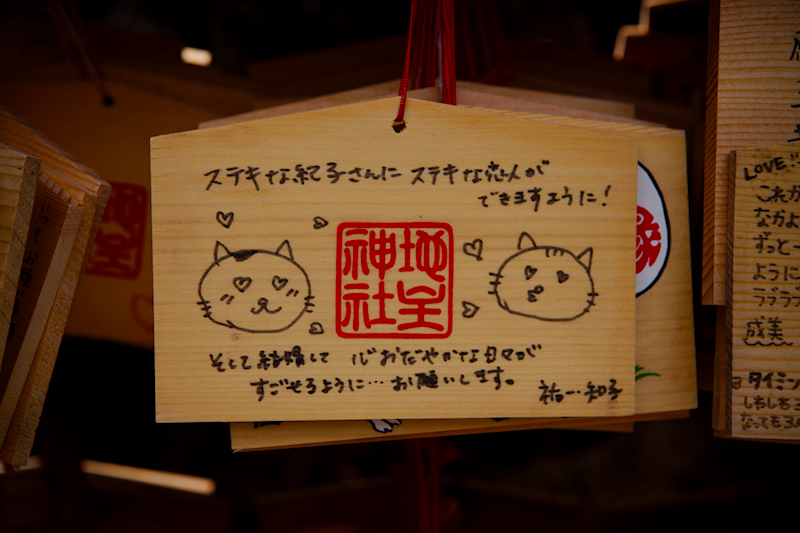 ステキな紀子さんに ステキな恋人が
できますように!
地主
神社
そして結婚して 心おだやかな日々が
すごせるように… お願いします。
祐一・知子
LOVE!!
これか
なかよ
ずっと一
ように
ラブラブ
成美
タイミン